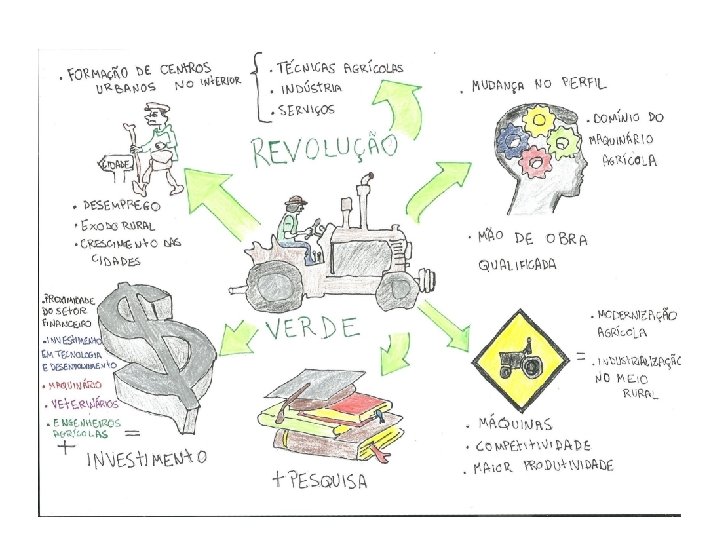 . FORMAÇÃO DE CENTROS
URBANOS NO INTERIOR
. TÉCNICAS AGRÍCOLAS
. INDÚSTRIA
. SERVIÇOS
. MUDANÇA NO PERFIL
. DOMÍNIO DO
MAQUINÁRIO
AGRÍCOLA
. MÃO DE OBRA
QUALIFICADA
REVOLUÇÃO
VERDE
CIDADE
. DESEMPREGO
. EXODO RURAL
. CRESCIMENTO DAS
CIDADES
. PROXIMIDADE
DO SETOR
FINANCEIRO
. INVESTIMENTO
EM TECNOLOGIA
E DESENVOLVIMENTO
. MAQUINÁRIO
. VETERINÁRIOS
. ENGENHEIROS
AGRÍCOLAS =
+ INVESTIMENTO
+ PESQUISA
= . MODERNIZAÇÃO
AGRÍCOLA
. INDUSTRIALIZAÇÃO
NO MEIO
RURAL
. MÁQUINAS
. COMPETITIVIDADE
. MAIOR PRODUTIVIDADE